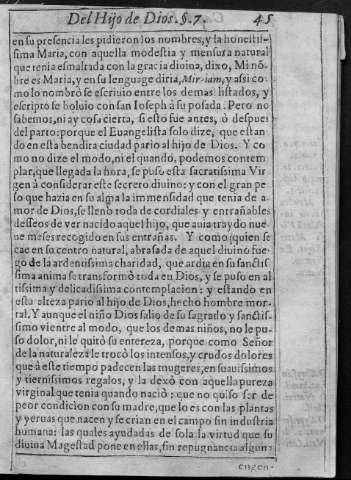 Del Hijo de Dios. §. 7. 45
en su presencia les pidieron los nombres, y la honestis-
sima Maria, con aquella modestia y mensura natural
que tenia esmaltada con la gracia divina, dixo, Mi nõ
bre es Maria, y en su lenguage diria, Mir-iam, y assi co
mo lo nombrò se escriuio entre los demas listados, y
escripto se boluio con san Ioseph à su posada. Pero no
sabemos, ni ay cosa cierta, si esto fue antes, ò despues
del parto: porque el Euangelista solo dize, que estan
do en esta bendita ciudad pario al hijo de Dios. Y co
mo no dize el modo, ni el quando, podemos contem
plar, que llegada la hora, se puso esta sacratissima Vir
gen à considerar este secreto diuino: y con el gran pe
so que hazia en su alma la immensidad que tenia de a
mor de Dios, se llenò toda de cordiales y entrañables
desseos de ver nacido aquel hijo, que auia traydo nue
ue meses recogido en sus entrañas. Y como quien se
cae en su centro natural, abrasada de aquel diuino fue-
go de la ardentissima charidad, que ardia en su sanctis
sima anima se transformò toda en Dios, y se puso en al
tissima y delicadissima contemplacion: y estando en
esta alteza pario al hijo de Dios, hecho hombre mor
tal. Y aunque el niño Dios salio de su sagrado y sanctis-
simo vientre al modo, que los demas niños, no le pu-
so dolor, ni le quitò su entereza, porque como Señor
de la naturaleza le trocò los intensos, y crudos dolores
que à este tiempo padecen las mugeres, en suauissimos
y tiernissimos regalos, y la dexò con aquella pureza
virginal que tenia quando naciò: que no quiso ser de
peor condicion con su madre, que lo es con las plantas
y yeruas que nacen y se crian en el campo sin industria
humana: las quales ayudadas de sola la virtud que su
diuina Magestad pone en ellas, sin repugnancia alguna